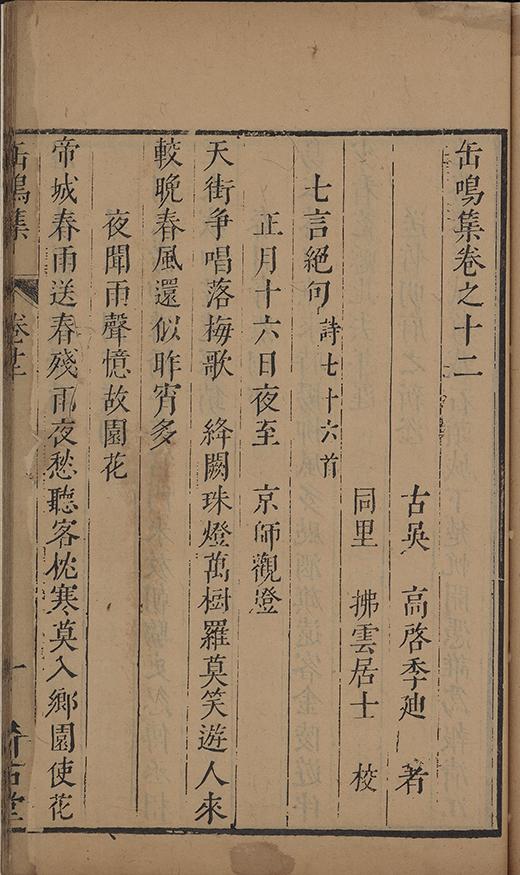 缶鳴集卷之十二
古吳 高啓季迪 著
同里 拂雲居士 校
七言絕句 詩七十六首
正月十六日夜至 京師觀澄
天街争唱落梅歌 絳闕珠燈萬樹羅莫笑遊人來
較晚春風還似昨宵多
夜聞雨聲憶故園花
帝城春雨送春殘雨夜愁聽客枕寒莫入鄉園使花
缶鳴集 卷十二 一